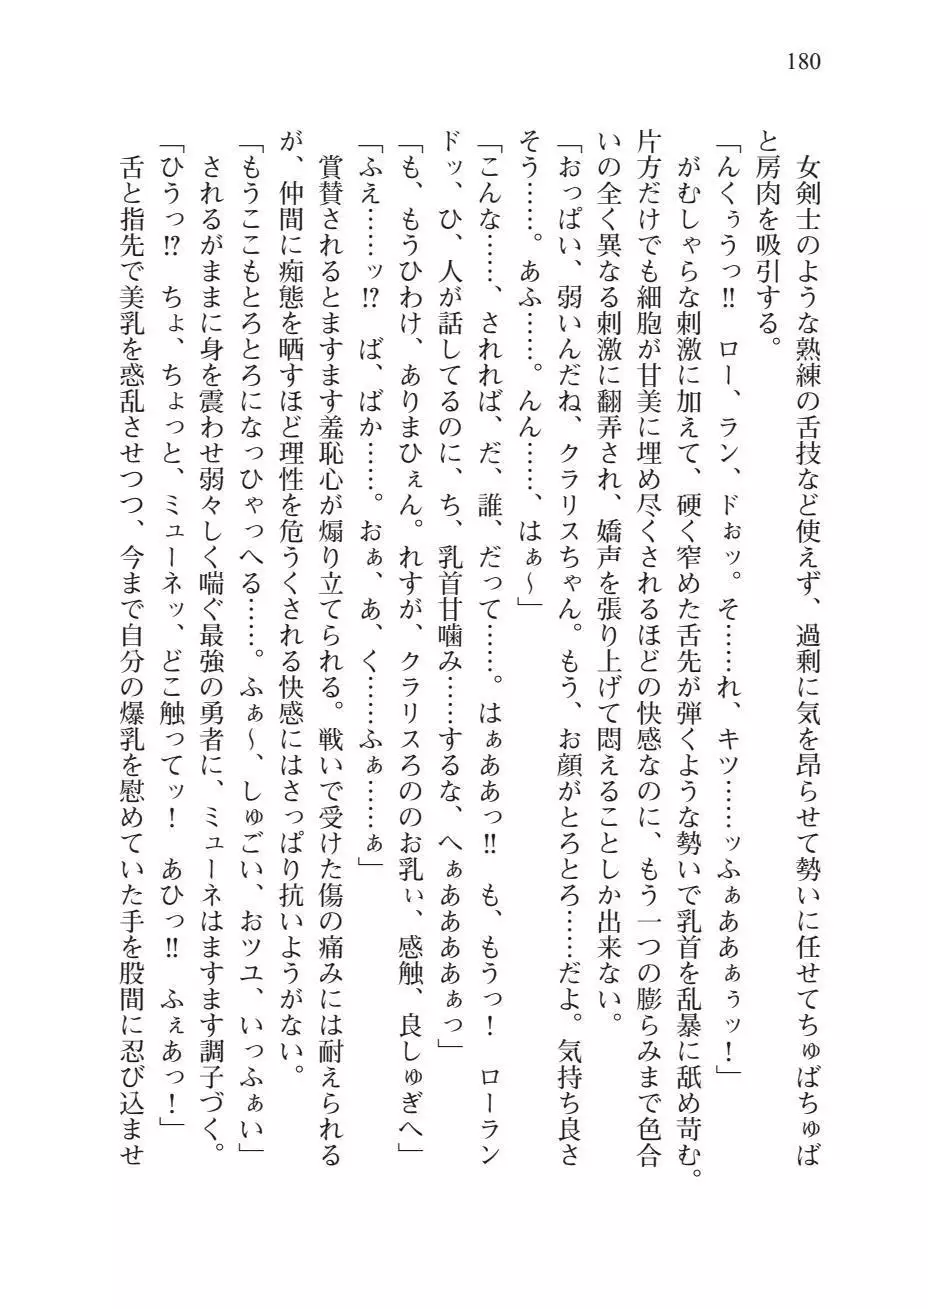 180
女剣士のような熟練の舌技など使えず、過剰に気を昂らせて勢いに任せてちゅばちゅば
と房肉を吸引する。
「んくぅうっ!!　ロー、ラン、ドぉッ。そ……れ、キツ……ッふぁああぁぅッ！」
がむしゃらな刺激に加えて、硬く窄めた舌先が弾くような勢いで乳首を乱暴に舐め苛む。
片方だけでも細胞が甘美に埋め尽くされるほどの快感なのに、もう一つの膨らみまで色合
いの全く異なる刺激に翻弄され、嬌声を張り上げて悶えることしか出来ない。
「おっぱい、弱いんだね、クラリスちゃん。もう、お顔がとろとろ……だよ。気持ち良さ
そう……。あふ……。んん……、はぁ〜」
「こんな……、されれば、だ、誰、だって……。はぁああっ!!　も、もうっ！　ローラン
ドッ、ひ、人が話してるのに、ち、乳首甘噛み……するな、へぁああああぁっ」
「も、もうひわけ、ありまひぇん。れすが、クラリスろののお乳ぃ、感触、良しゅぎへ」
「ふえ……ッ!?　ば、ばか……。おぁ、あ、く……ふぁ……ぁ」
賞賛されるとますます羞恥心が煽り立てられる。戦いで受けた傷の痛みには耐えられる
が、仲間に痴態を晒すほど理性を危うくされる快感にはさっぱり抗いようがない。
「もうここもとろとろになっひゃっへる……。ふぁ〜、しゅごい、おツユ、いっふぁい」
されるがままに身を震わせ弱々しく喘ぐ最強の勇者に、ミューネはますます調子づく。
「ひうっ!?　ちょ、ちょっと、ミューネッ、どこ触ってッ！　あひっ!!　ふぇあっ！」
舌と指先で美乳を惑乱させつつ、今まで自分の爆乳を慰めていた手を股間に忍び込ませ